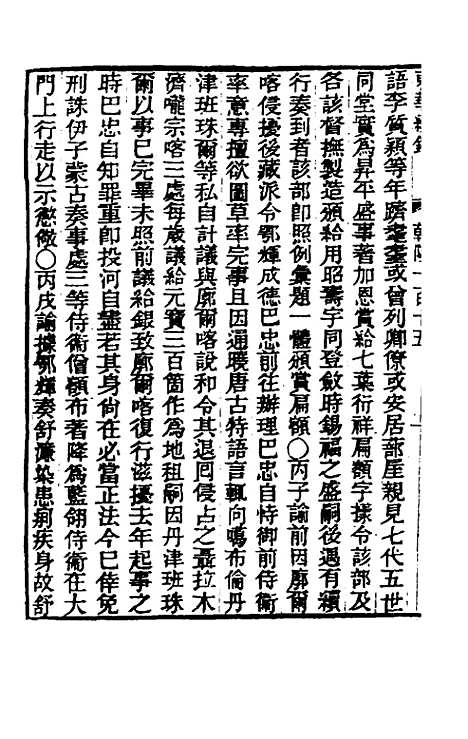 語李質穎等年躋耋耋或曾列卿僚或安居部屋親見七代五世
同堂實為昇平盛事著加恩賞給七葉衍祥扁額字樣令該部及
各該督撫製造頒給用昭壽宇同登斂時錫福之盛嗣後遇有續
行奏到者該部卽照例彙題一體頒賞扁額○丙子諭前因廓爾
喀侵擾後藏派令鄂輝成德巴忠前往辦理巴忠自恃御前侍衛
率意專擅欲圖草率完事且因通曉唐古特語言輒向噶布倫丹
津班珠爾等私自計議與廓爾喀說和令其退囘侵占之聶拉木
濟嚨宗喀三處每歲議給元寶三百箇作為地租嗣因丹津班珠
爾以事已完畢未照前議給銀致廓爾喀復行滋擾去年起事之
時巴忠自知罪重卽投河自盡若其身尙在必當正法今已倖免
刑誅伊子蒙古奏事處三等侍衛僧額布著降為藍翎侍衛在大
門上行走以示懲儆○丙戌諭據鄂輝奏舒濂染患痢疾身故舒